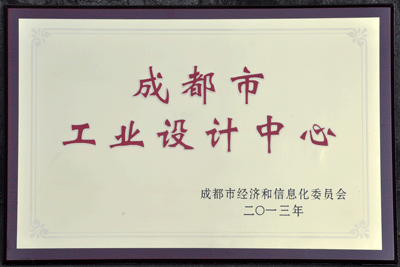 成都市
工业设计中心
成都市经济和信息化委员会
二〇一三年